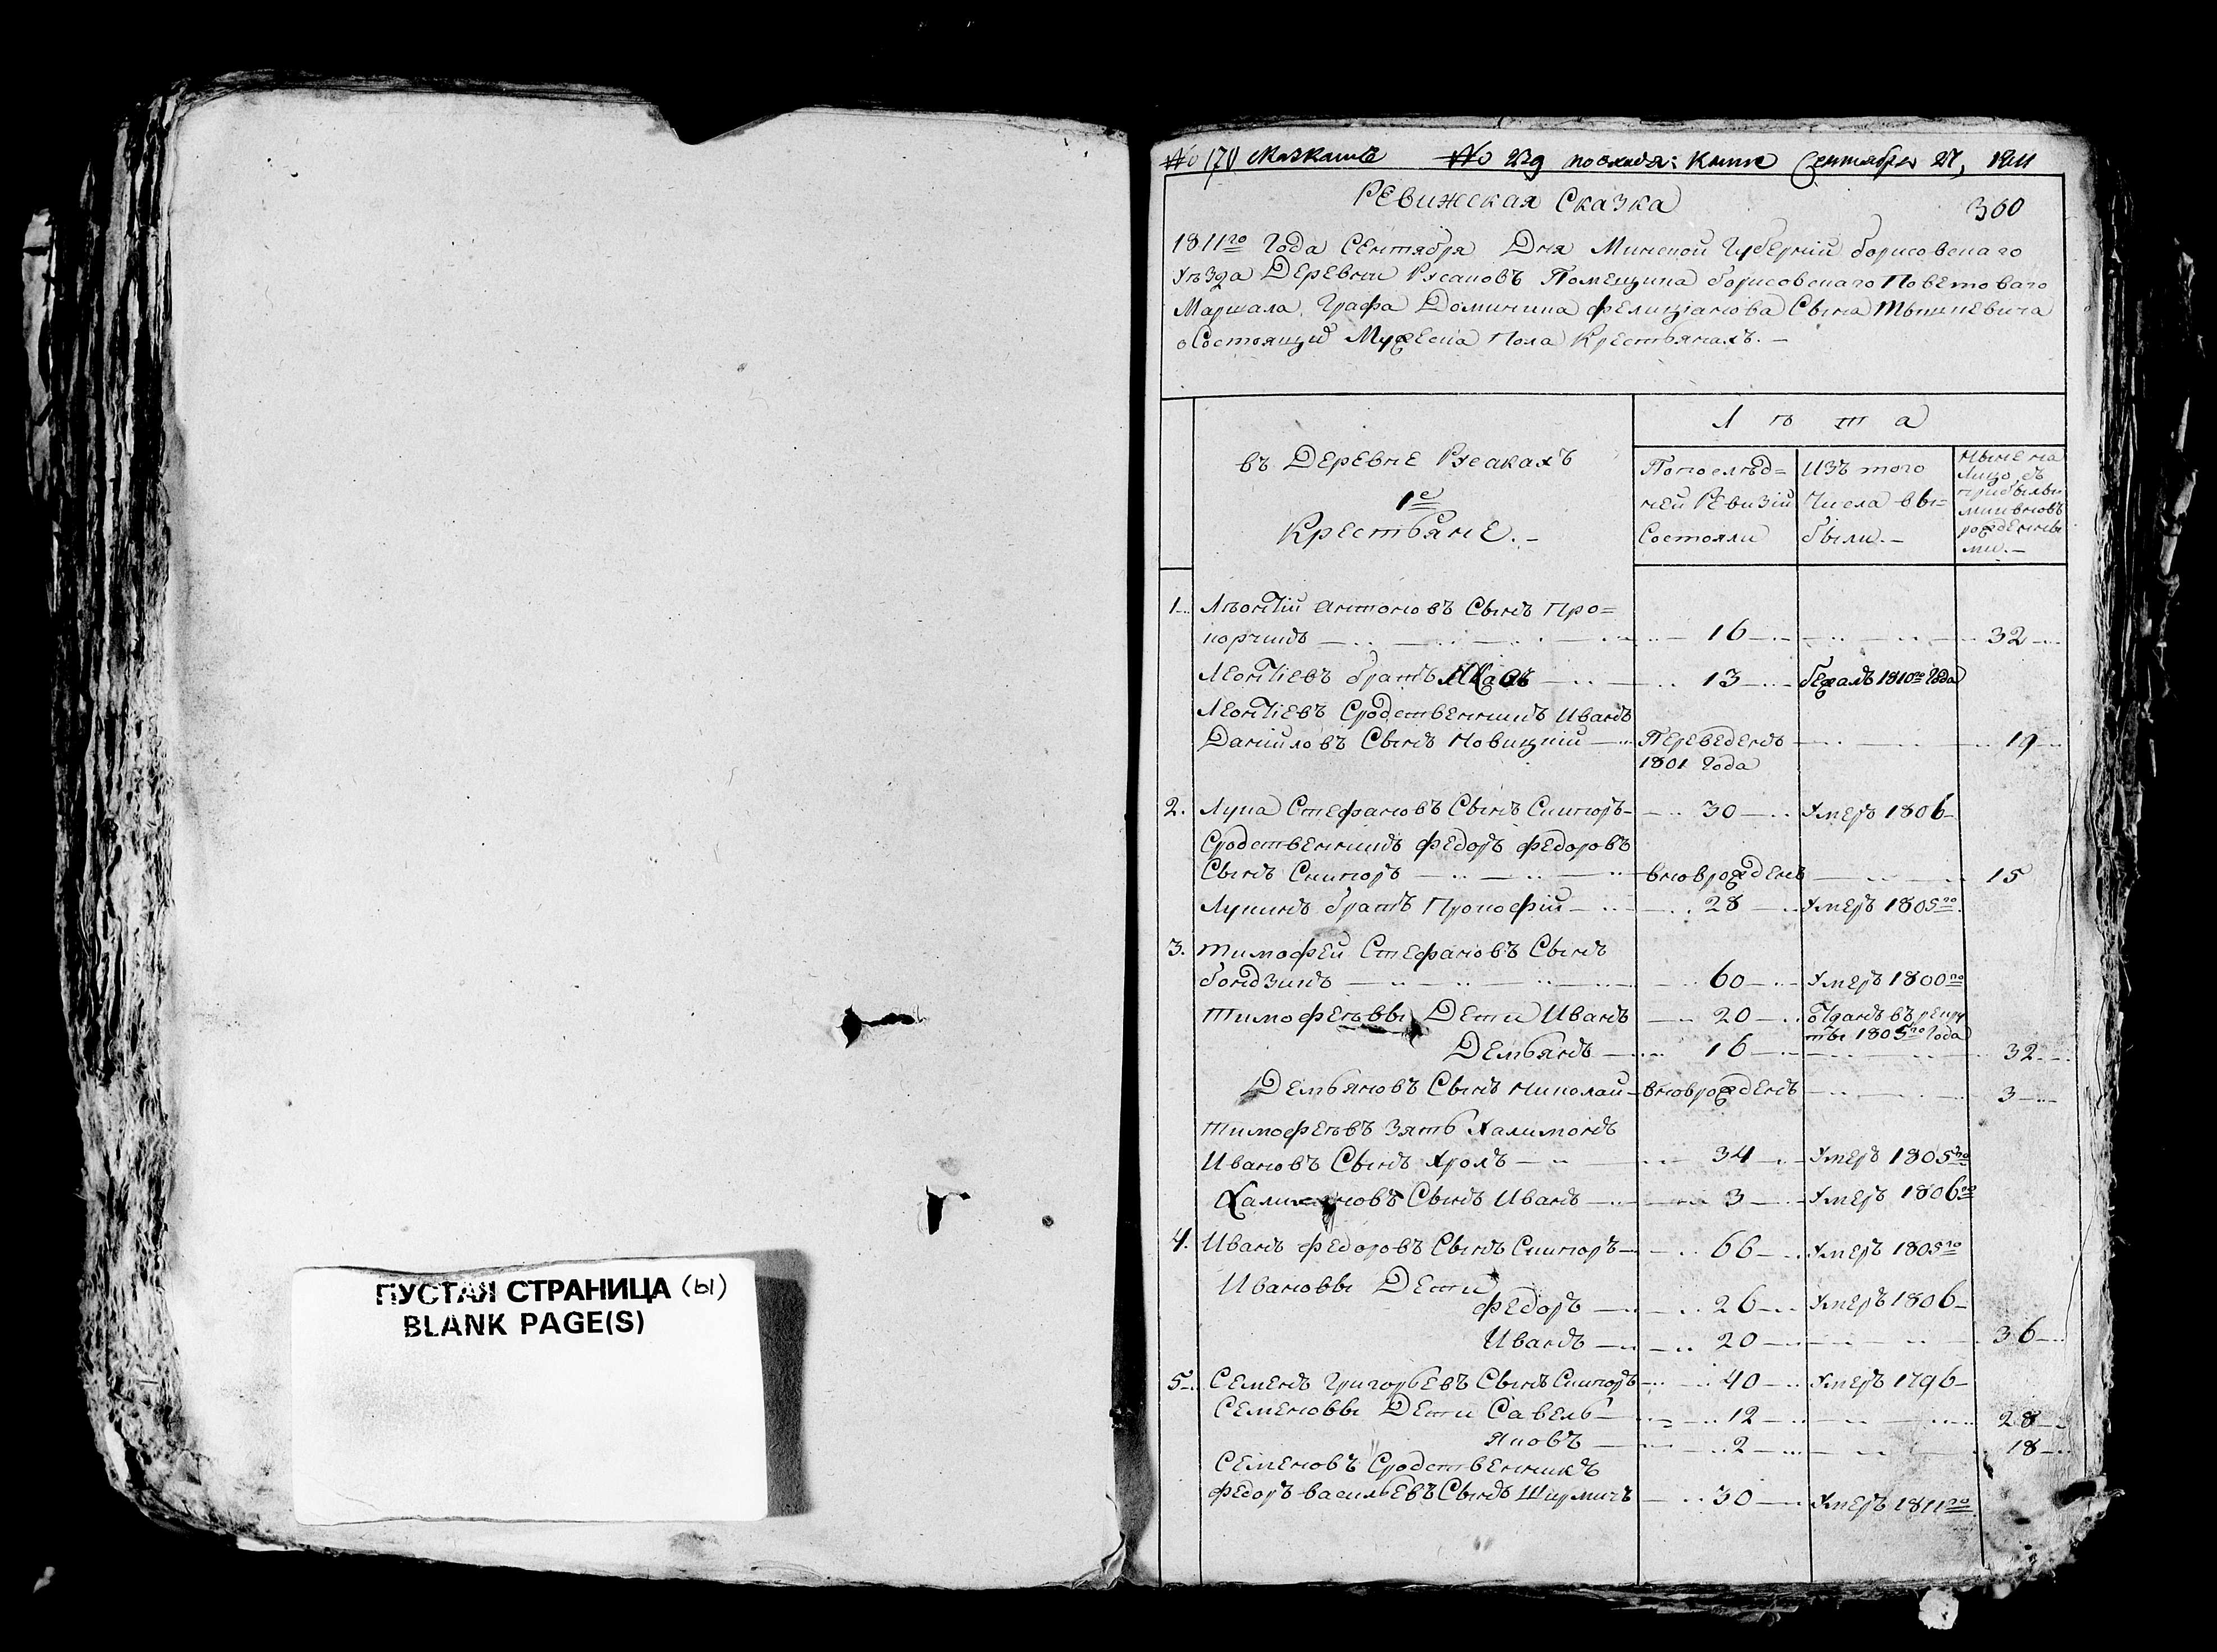 ПУСТАЯ СТРАНИЦА (ы)
BLANK PAGE(S)
№ 170 №229 по входя: Книге Сентября 27, 1811
РЕвижская Сказка 360
1811го Года СЕнтября Дня Минской ГубЕрнии борисовскаго
Уѣзда ДЕрЕвни Русаковъ ПомЕщика борисовскаго ПовЕтоваго
Маршала Графа Доминика фЕлицiанова Сына ТышкЕвича
о Состоящих МужЕска Пола КрЕстьянахъ. —
Л ѣ т а
въ ДЕрЕвнЕ Русакахъ
1е
КрЕстьянЕ. —
По послѣд=
нЕй РЕвизiи
Состояли
Изъ того
Числа вы=
были. —
НынЕ на
Лицо съ
прибылы
ми и вновь
рождЕнны
ми. —
1. Лѣонтiй антоновъ Сынъ Про=
порчикъ 16 32
ЛЕонтiЕвъ братъ 13 бежалъ 1810го Года
ЛЕонтiЕвъ СродствЕнникъ Иванъ
Данииловъ Сынъ Новицкiй ПЕрЕвЕдЕнъ 19
1801 Года
2. Лука СтЕфановъ Сынъ Снигоръ 30 УмЕръ 1806
СродствЕнникъ фЕдоръ фЕдоровъ
Сынъ Снигоръ вновь рождЕнъ 15
Лукинъ братъ Прокофiй 28 УмЕръ 1805го
3. Тимофей СтЕфановъ Сынъ
бондзикъ 60 УмЕръ 1800го
ТимофЕѣвы ДЕти Иванъ 20 отданъ въ рекру
ты 1805го Года
ДЕмьянъ 16 32
ДЕмьяновъ Сынъ Николай вновь рождЕнъ 3
ТимофЕѣвъ Зять Халимонъ
Ивановъ Сынъ Хролъ 34 УмЕръ 1805го
Халимоновъ Сынъ Иванъ 3 УмЕръ 1806го
4. Иванъ фЕдоровъ Сынъ Снигоръ 66 УмЕръ 1805го
Ивановы ДЕти
фЕдоръ 26 УмЕръ 1806
Иванъ 20 36
5. СЕмЕнъ ГригорьЕвъ Сынъ Снигоръ 40 УмЕръ 1796
СЕмЕновы ДЕти СавЕль 12 28
Яковъ 2 18
СЕмЕновъ СродствЕнникъ
фЕдоръ васильЕвъ Сынъ Ширмичъ 30 УмЕръ 1811го